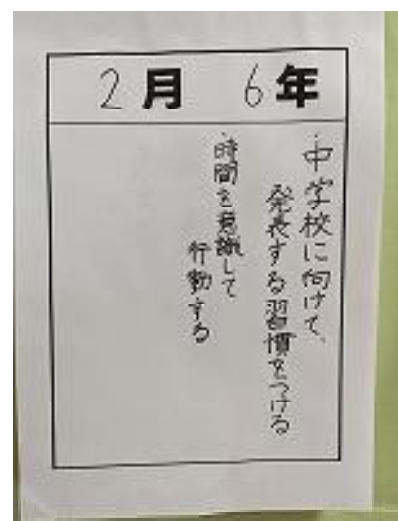 2月 6年
・中学校に向けて、
発表する習慣をつける
・時間を意識して
行動する